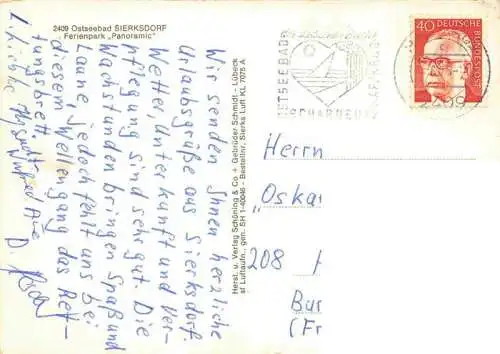 2409 Ostseebad SIERKSDORF
Ferienpark „Panoramic"
Wir senden Ihnen herzliche
Urlaubsgrüße aus Sierksdorf.
Wetter, Unterkunft und Ver-
pflegung sind sehr gut. Die
Wachstunden bringen Spaß und
Laune jedoch fehlt uns bei
diesem Wellengang das Ret-
tungsbrett.
Herst. u. Verlag Schöning & Co + Gebrüder Schmidt - Lübeck
sf Luftaufn., gen. SH 1-40046 - Bestellnr. Sierks Luft KL 7075 A
OSTSEEBAD
SCHARBEUTZ
40
DEUTSCHE
BUNDESPOST
2409
Herrn
„Oskar
208
Bur
(Fr